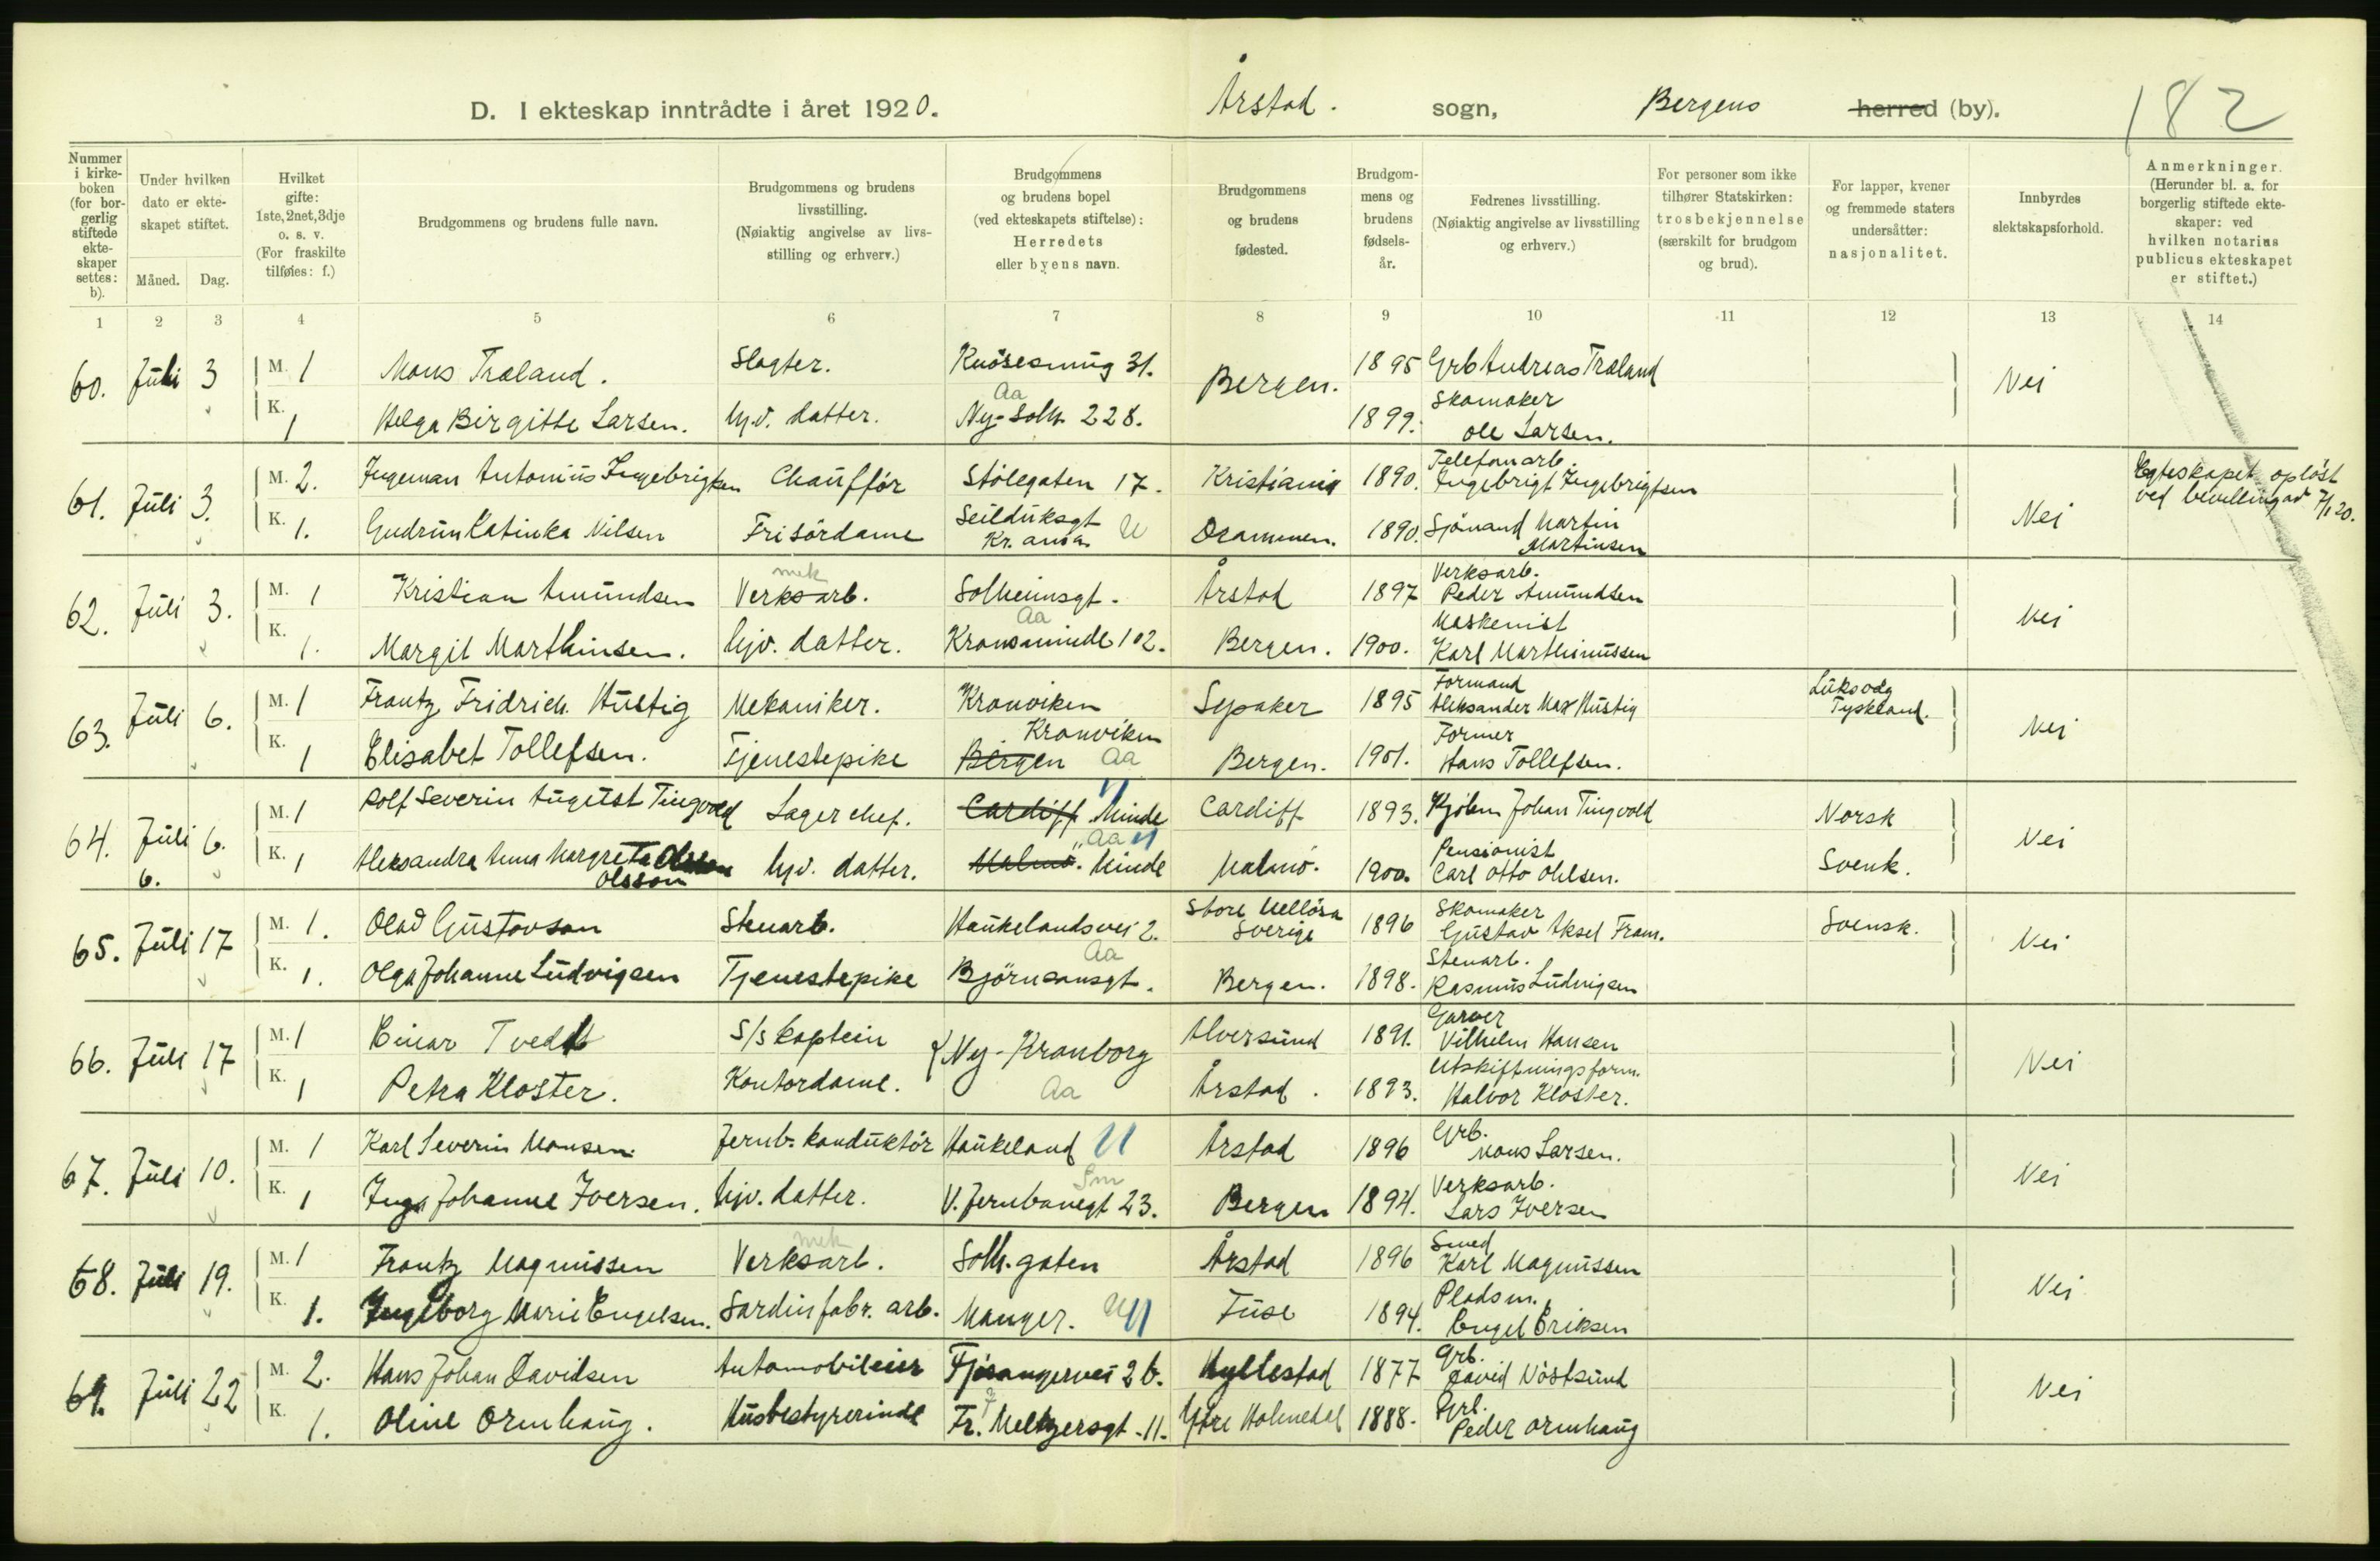 D. I ekteskap inntrådte i året 1920.
Årstad. sogn, Bergens herred (by).
182
Nummer i kirke-boken (for bor-gerlig stiftede ekte-skaper settes: b).
Under hvilken dato er ekte-skapet stiftet.
Måned. Dag.
Hvilket gifte: 1ste, 2net, 3dje o. s. v. (For fraskilte tilføies: f.)
Brudgommens og brudens fulle navn.
Brudgommens og brudens livsstilling. (Nøiaktig angivelse av livs-stilling og erhverv.)
Brudgommens og brudens bopel (ved ekteskapets stiftelse): Herredets eller byens navn.
Brudgommens og brudens fødested.
Brudgom-mens og brudens fødsels-år.
Fedrenes livsstilling. (Nøiaktig angivelse av livsstilling og erhverv.)
For personer som ikke tilhører Statskirken: trosbekjennelse (særskilt for brudgom og brud).
For lapper, kvener og fremmede staters undersåtter: nasjonalitet.
Innbyrdes slektskapsforhold.
Anmerkninger. (Herunder bl. a. for borgerlig stiftede ekte-skaper: ved hvilken notarius publicus ekteskapet er stiftet.)
1 2 3 4 5 6 7 8 9 10 11 12 13 14
60. Juli 3 M. 1 Mons Træland. Slagter. Knøsesmug 31. Bergen. 1895 Grb Andreas Træland Nei
K. 1 Helga Birgitte Larsen. hjv. datter. Aa Ny-Solh. 228. 1899. Skomaker Ole Larsen.
61. Juli 3. M. 2. Ingeman Antonius Ingebrigtsen Chaufför Stölegaten 17. Kristiania 1890. Telefonarb. Ingebrigt Ingebrigtsen Nei Egteskapet opløst ved bevilling av 7/1 20.
K. 1. Gudrun Katinka Nilsen Frisördame Seilduksgt Kr.ania U Drammen. 1890. Sjömand Martin Martinsen
62. Juli 3. M. 1 Kristian Amundsen mek Verksarb. Solheimsgt. Årstad 1897 Verksarb. Peder Amundsen Nei
K. 1. Margit Marthinsen. hjv. datter. Aa Kronsminde 102. Bergen. 1900. Maskenist Karl Marthinussen
63. Juli 6. M. 1 Frantz Fridrich Hustig Mekaniker. Kronviken 1895 Formand Aleksander Max Hustig Tyskland. Nei
K. 1 Elisabet Tollefsen. Tjenestepike Bergen Kronviken Aa Bergen. 1901. Former Hans Tollefsen.
64. Juli 6. M. 1 Rolf Severin August Tingvold Lagerchef. Cardiff Minde Cardiff 1893. Kjøbm Johan Tingvold Norsk Nei
6. K. 1 Aleksandra Anna Margreta Olsson hjv. datter. Malmö. Minde Aa Malmö. 1900. Pensionist Carl Otto Ohlsen. Svensk.
65. Juli 17 M. 1. Olov Gustavson Stenarb. Haukelandsvei 2. Store Mellösa Sverige 1896 Skomaker Gustav Aksel Fram. Svensk. Nei
K. 1. Olga Johanne Ludvigsen Tjenestepike Aa Björnsonsgt. Bergen. 1898. Stenarb. Rasmus Ludvigsen
66. Juli 17 M. 1 Einar Tvedt S/s kaptein Ny-Kronborg Alversund 1891. Garver Vilhelm Hansen Nei
K. 1 Petra Kloster. Kontordame. Aa Årstad. 1893. Utskiftningsform. Halvor Kloster.
67. Juli 10. M. 1 Karl Severin Monsen. Jernb. konduktör Haukeland U Årstad 1896 Grb. Mons Larsen. Nei
K. 1 Inga Johanne Iversen. hjv. datter. Sm V. Jernbanegt 23. Bergen 1894. Verksarb. Lars Iversen
68. Juli 19. M. 1 Frantz Magnussen mek Verksarb. Solh.gaten Årstad 1896 Smed Karl Magnussen Nei
K. 1. Ingeborg Marie Engelsen. Sardinfabr. arb. Manger. U Fuse 1894. Pladsm. Engel Eriksen
69. Juli 22 M. 2. Hans Johan Davidsen Automobileier Fjøsangervei 26. Hyllestad 1877 Grb. David Nöstsund Nei
K. 1. Oline Ormhaug. Husbestyrerinde Fr. Meltzersgt. 11. Ytre Holmedal 1888. Grb. Peder Ormhaug